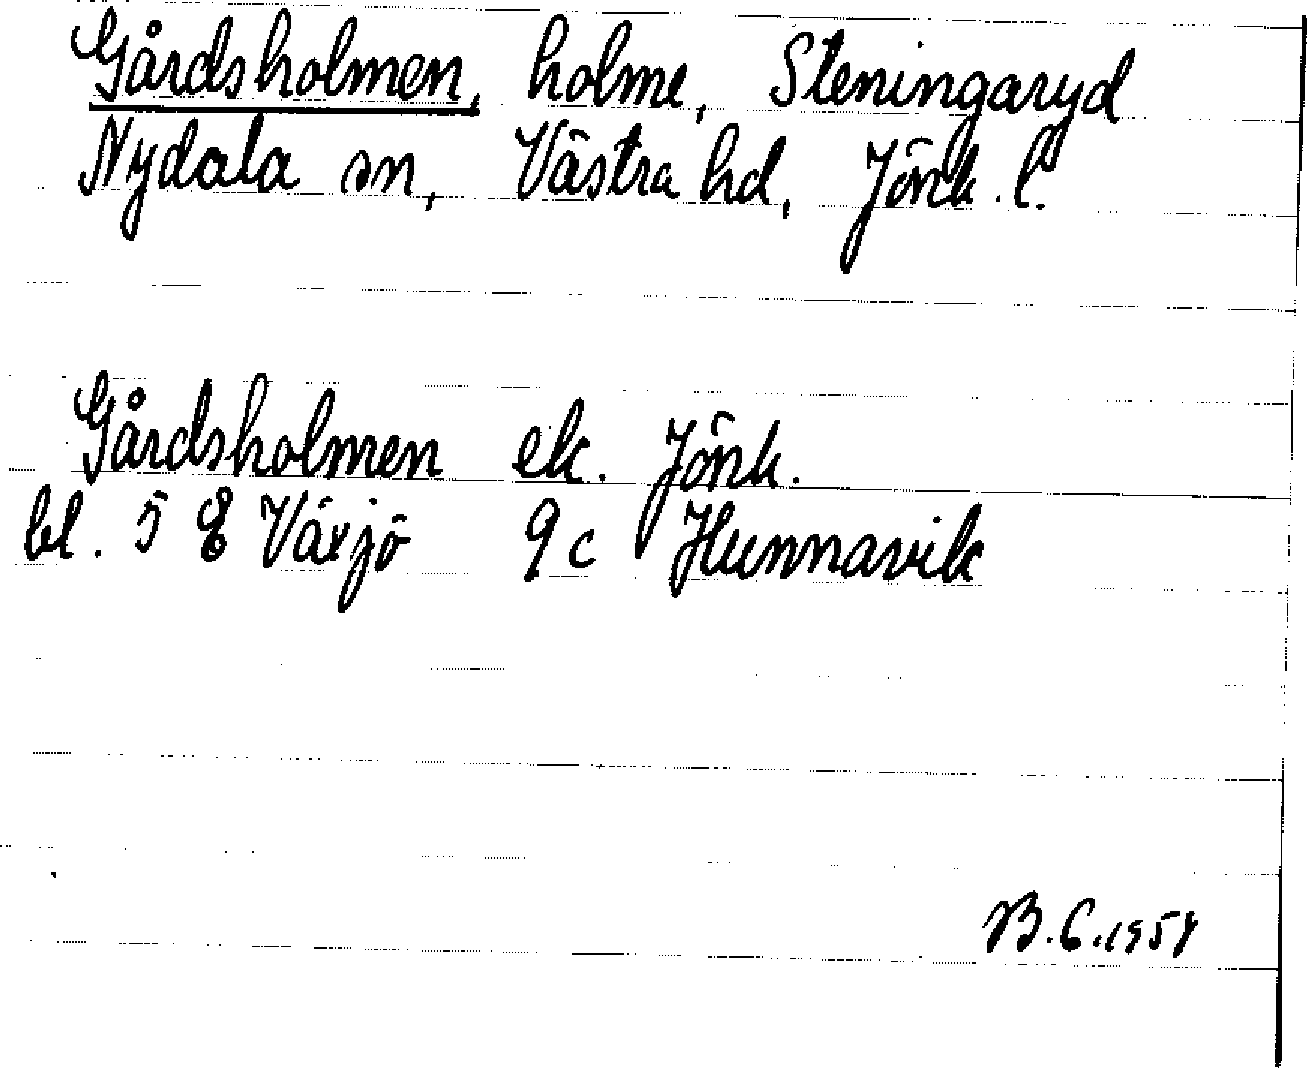 Gårdsholmen, holme, Steningaryd
Nydala sn, Västra hd, Jönk. l.
Gårdsholmen ek. Jönk.
bl. 5 E Växjö 9 c Hunnavik
B.C.